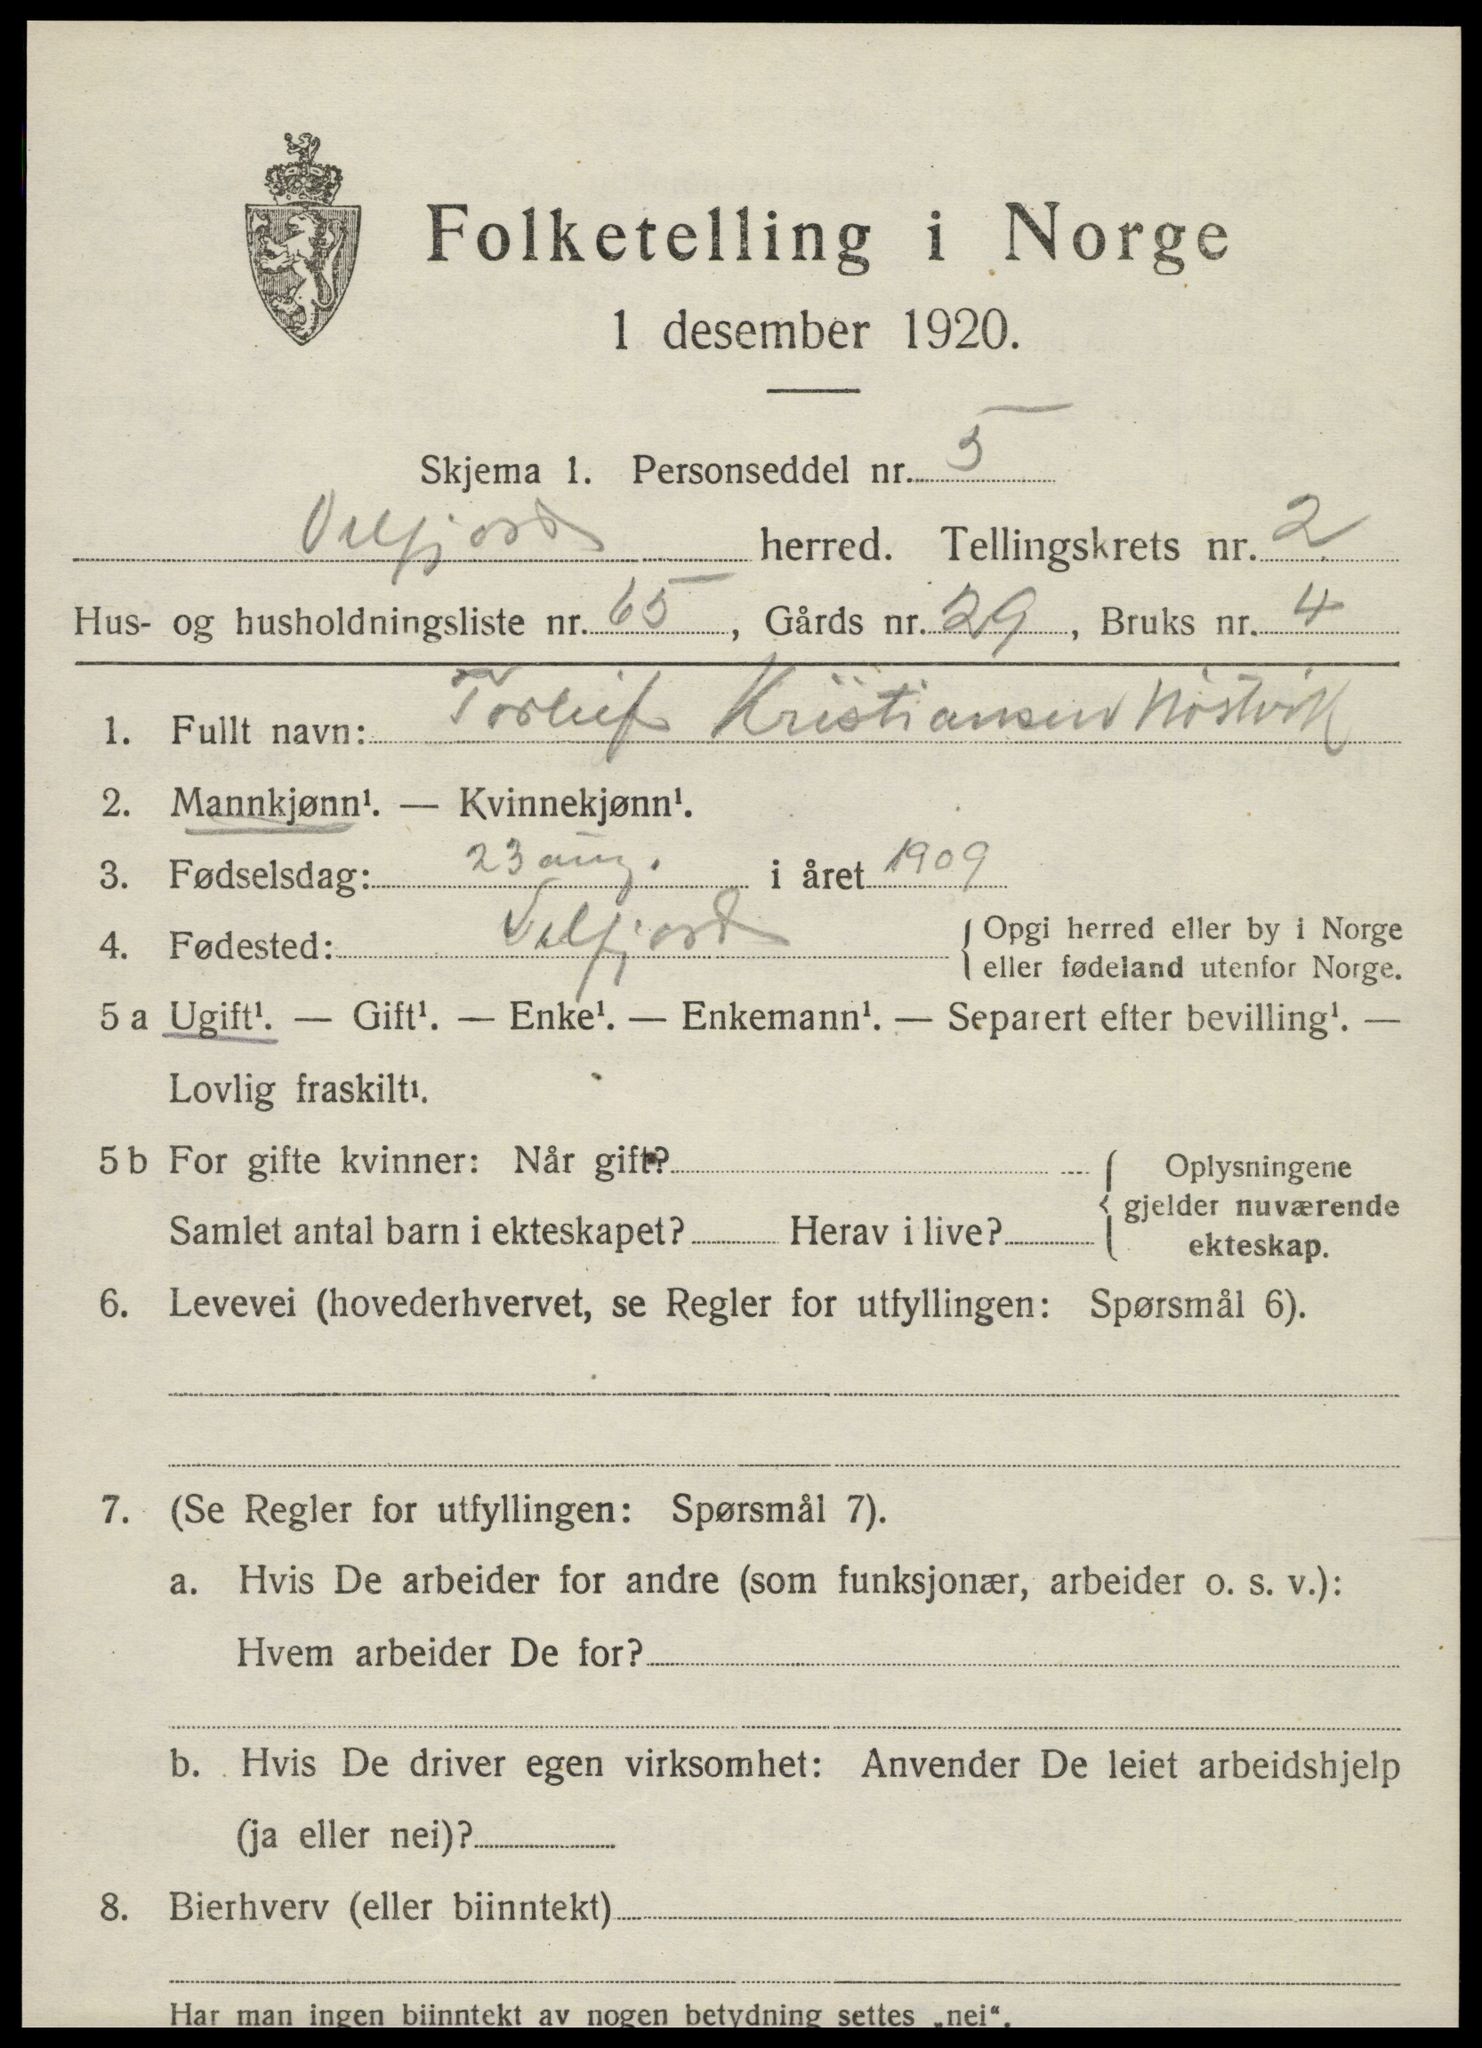 Folketelling i Norge
1 desember 1920.
Skjema 1. Personseddel nr. 5
Velfjord herred. Tellingskrets nr. 2
Hus- og husholdningsliste nr. 65, Gårds nr. 29, Bruks nr. 4
1. Fullt navn: Torleif Kristiansen Nöstvik
2. Mannkjønn¹. — Kvinnekjønn¹.
3. Fødselsdag: 23 aug. i året 1909
4. Fødested: Velfjord { Opgi herred eller by i Norge
eller fødeland utenfor Norge.
5 a Ugift¹. — Gift¹. — Enke¹. — Enkemann¹. — Separert efter bevilling¹. —
Lovlig fraskilt¹.
5 b For gifte kvinner: Når gift? { Oplysningene
gjelder nuværende
Samlet antal barn i ekteskapet? Herav i live? ekteskap.
6. Levevei (hovederhvervet, se Regler for utfyllingen: Spørsmål 6).
7. (Se Regler for utfyllingen: Spørsmål 7).
a. Hvis De arbeider for andre (som funksjonær, arbeider o. s. v.):
Hvem arbeider De for?
b. Hvis De driver egen virksomhet: Anvender De leiet arbeidshjelp
(ja eller nei)?
8. Bierhverv (eller biinntekt)
Har man ingen biinntekt av nogen betydning settes „nei“.